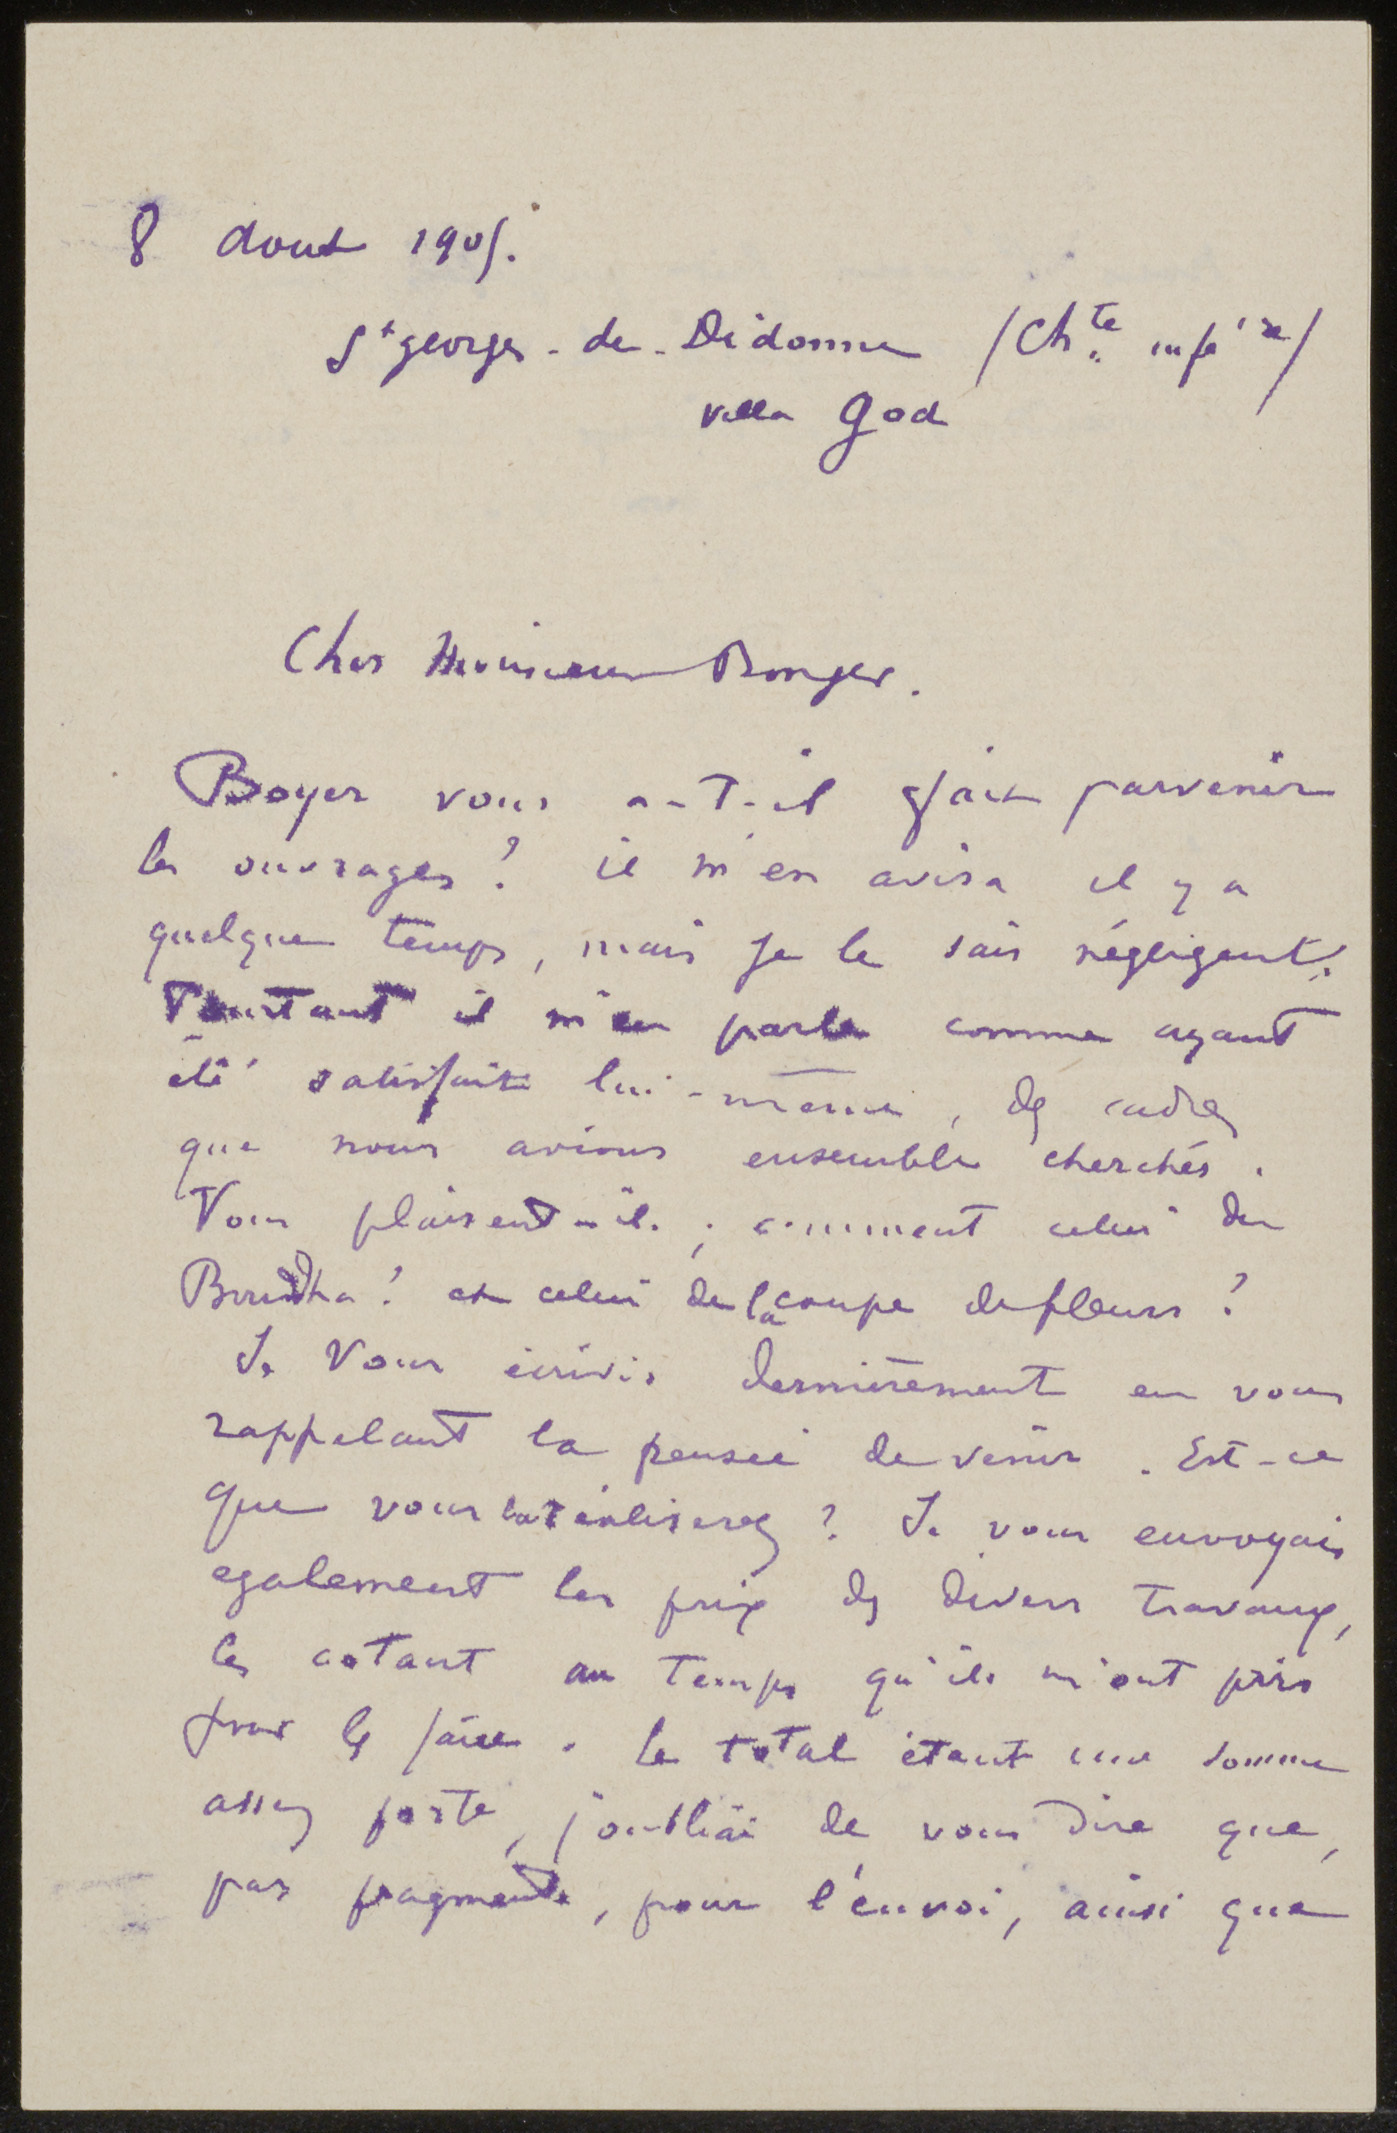 8 aout 1905.
St georges-de-Didonne (Chte infére)
villa God
Cher Monsieur Bonger.
Boyer vous a-t-il fait parvenir
les ouvrages? il m'en avisa il y a
quelque temps, mais je le sais négligent.
Pourtant il m'en parla comme ayant
été satisfait lui-même, des cadres
que nous avions ensemble cherchés.
Vous plaisent-ils; comment celui du
Bouddha? et celui de la coupe de fleurs?
Je Vous écrivis dernièrement en vous
rappelant la pensée de venir. Est-ce
que vous la réaliserez? Je vous envoyais
egalement les prix des divers travaux,
les cotant au temps qu'ils m'ont pris
pour les faire. Le total étant une somme
assez forte, j'oubliai de vous dire que,
par fragments, pour l'envoi, ainsi que